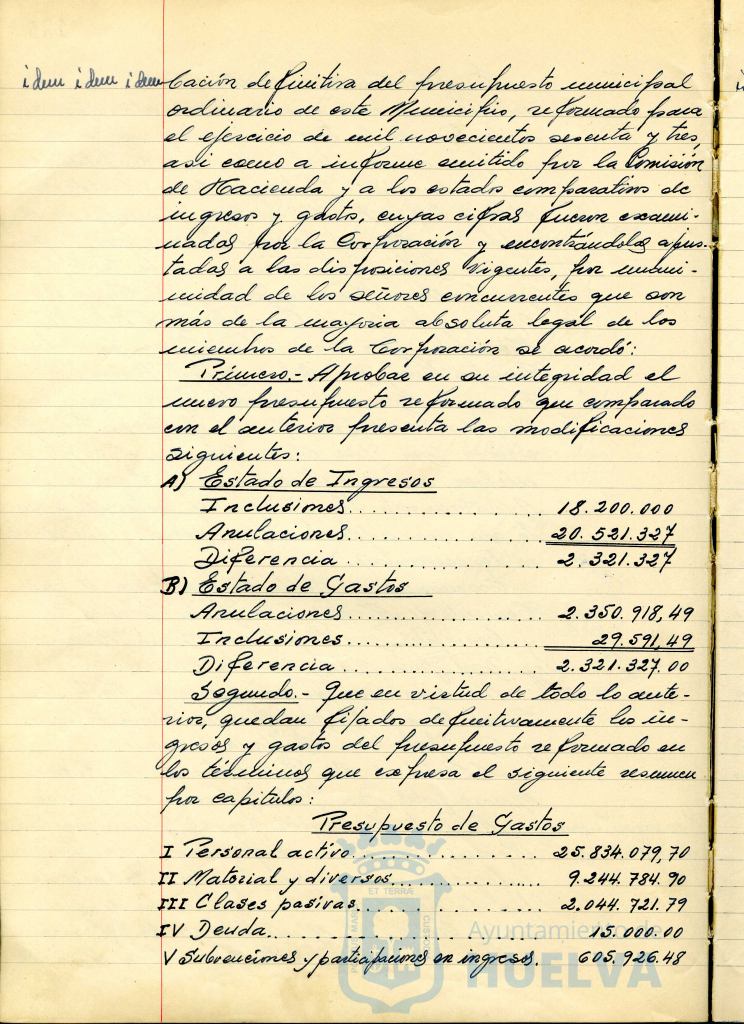 idem idem idem
cación definitiva del presupuesto municipal
ordinario de este Municipio, reformado para
el ejercicio de mil novecientos sesenta y tres,
asi como a informe emitido por la Comisión
de Hacienda y a los estados comparativos de
ingresos y gastos, cuyas cifras fueron exami-
nadas por la Corporación y encontrándolas ajus-
tadas a las disposiciones vigentes, por unani-
midad de los señores concurrentes que son
más de la mayoria absoluta legal de los
miembros de la Corporación se acordó:
Primero.- Aprobar en su integridad el
nuevo presupuesto reformado que comparado
con el anterior presenta las modificaciones
siguientes:
A) Estado de Ingresos
Inclusiones.................. 18.200.000
Anulaciones.................. 20.521.327
Diferencia................... 2.321.327
B) Estado de Gastos
Anulaciones.................. 2.350.918,49
Inclusiones.................. 29.591,49
Diferencia................... 2.321.327.00
Segundo.- Que en virtud de todo lo ante-
rior, quedan fijados definitivamente los in-
gresos y gastos del presupuesto reformado en
los términos que expresa el siguiente resumen
por capitulos:
Presupuesto de Gastos
I Personal activo.................. 25.834.079,70
II Material y diversos............... 9.244.784.90
III Clases pasivas.................. 2.044.721.79
IV Deuda......................... 15.000.00
V Subvenciones y participaciones en ingresos. 605.926.48
Ayuntamiento de
HUELVA